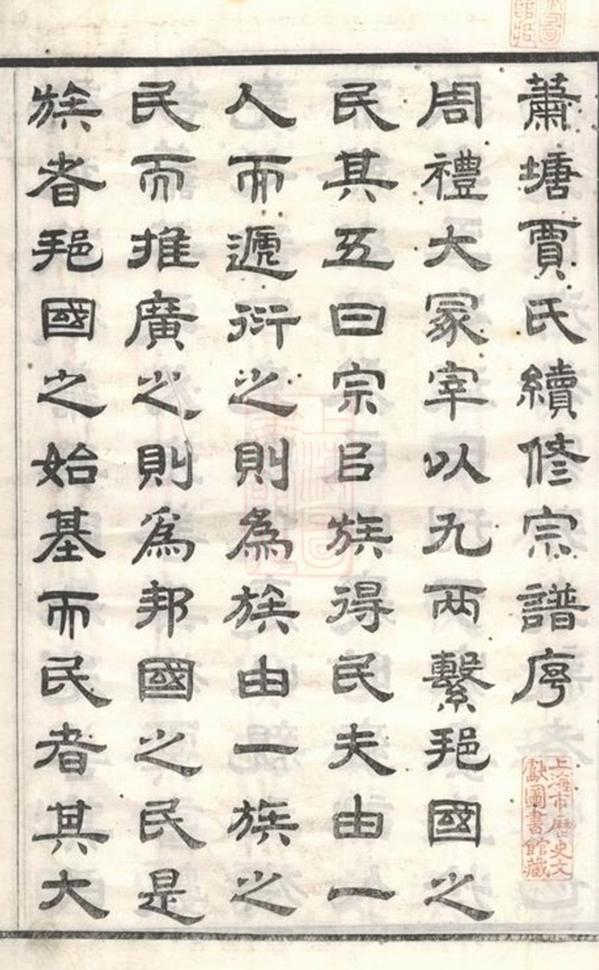 蕭塘賈氏續修宗譜序
周禮大冢宰以九两繫邦國之
民其五曰宗㠯族得民夫由一
人而遞衍之則為族由一族之
民而推廣之則爲邦國之民是
族者邦國之始基而民者其大
上海市歷史文
獻圖書館藏